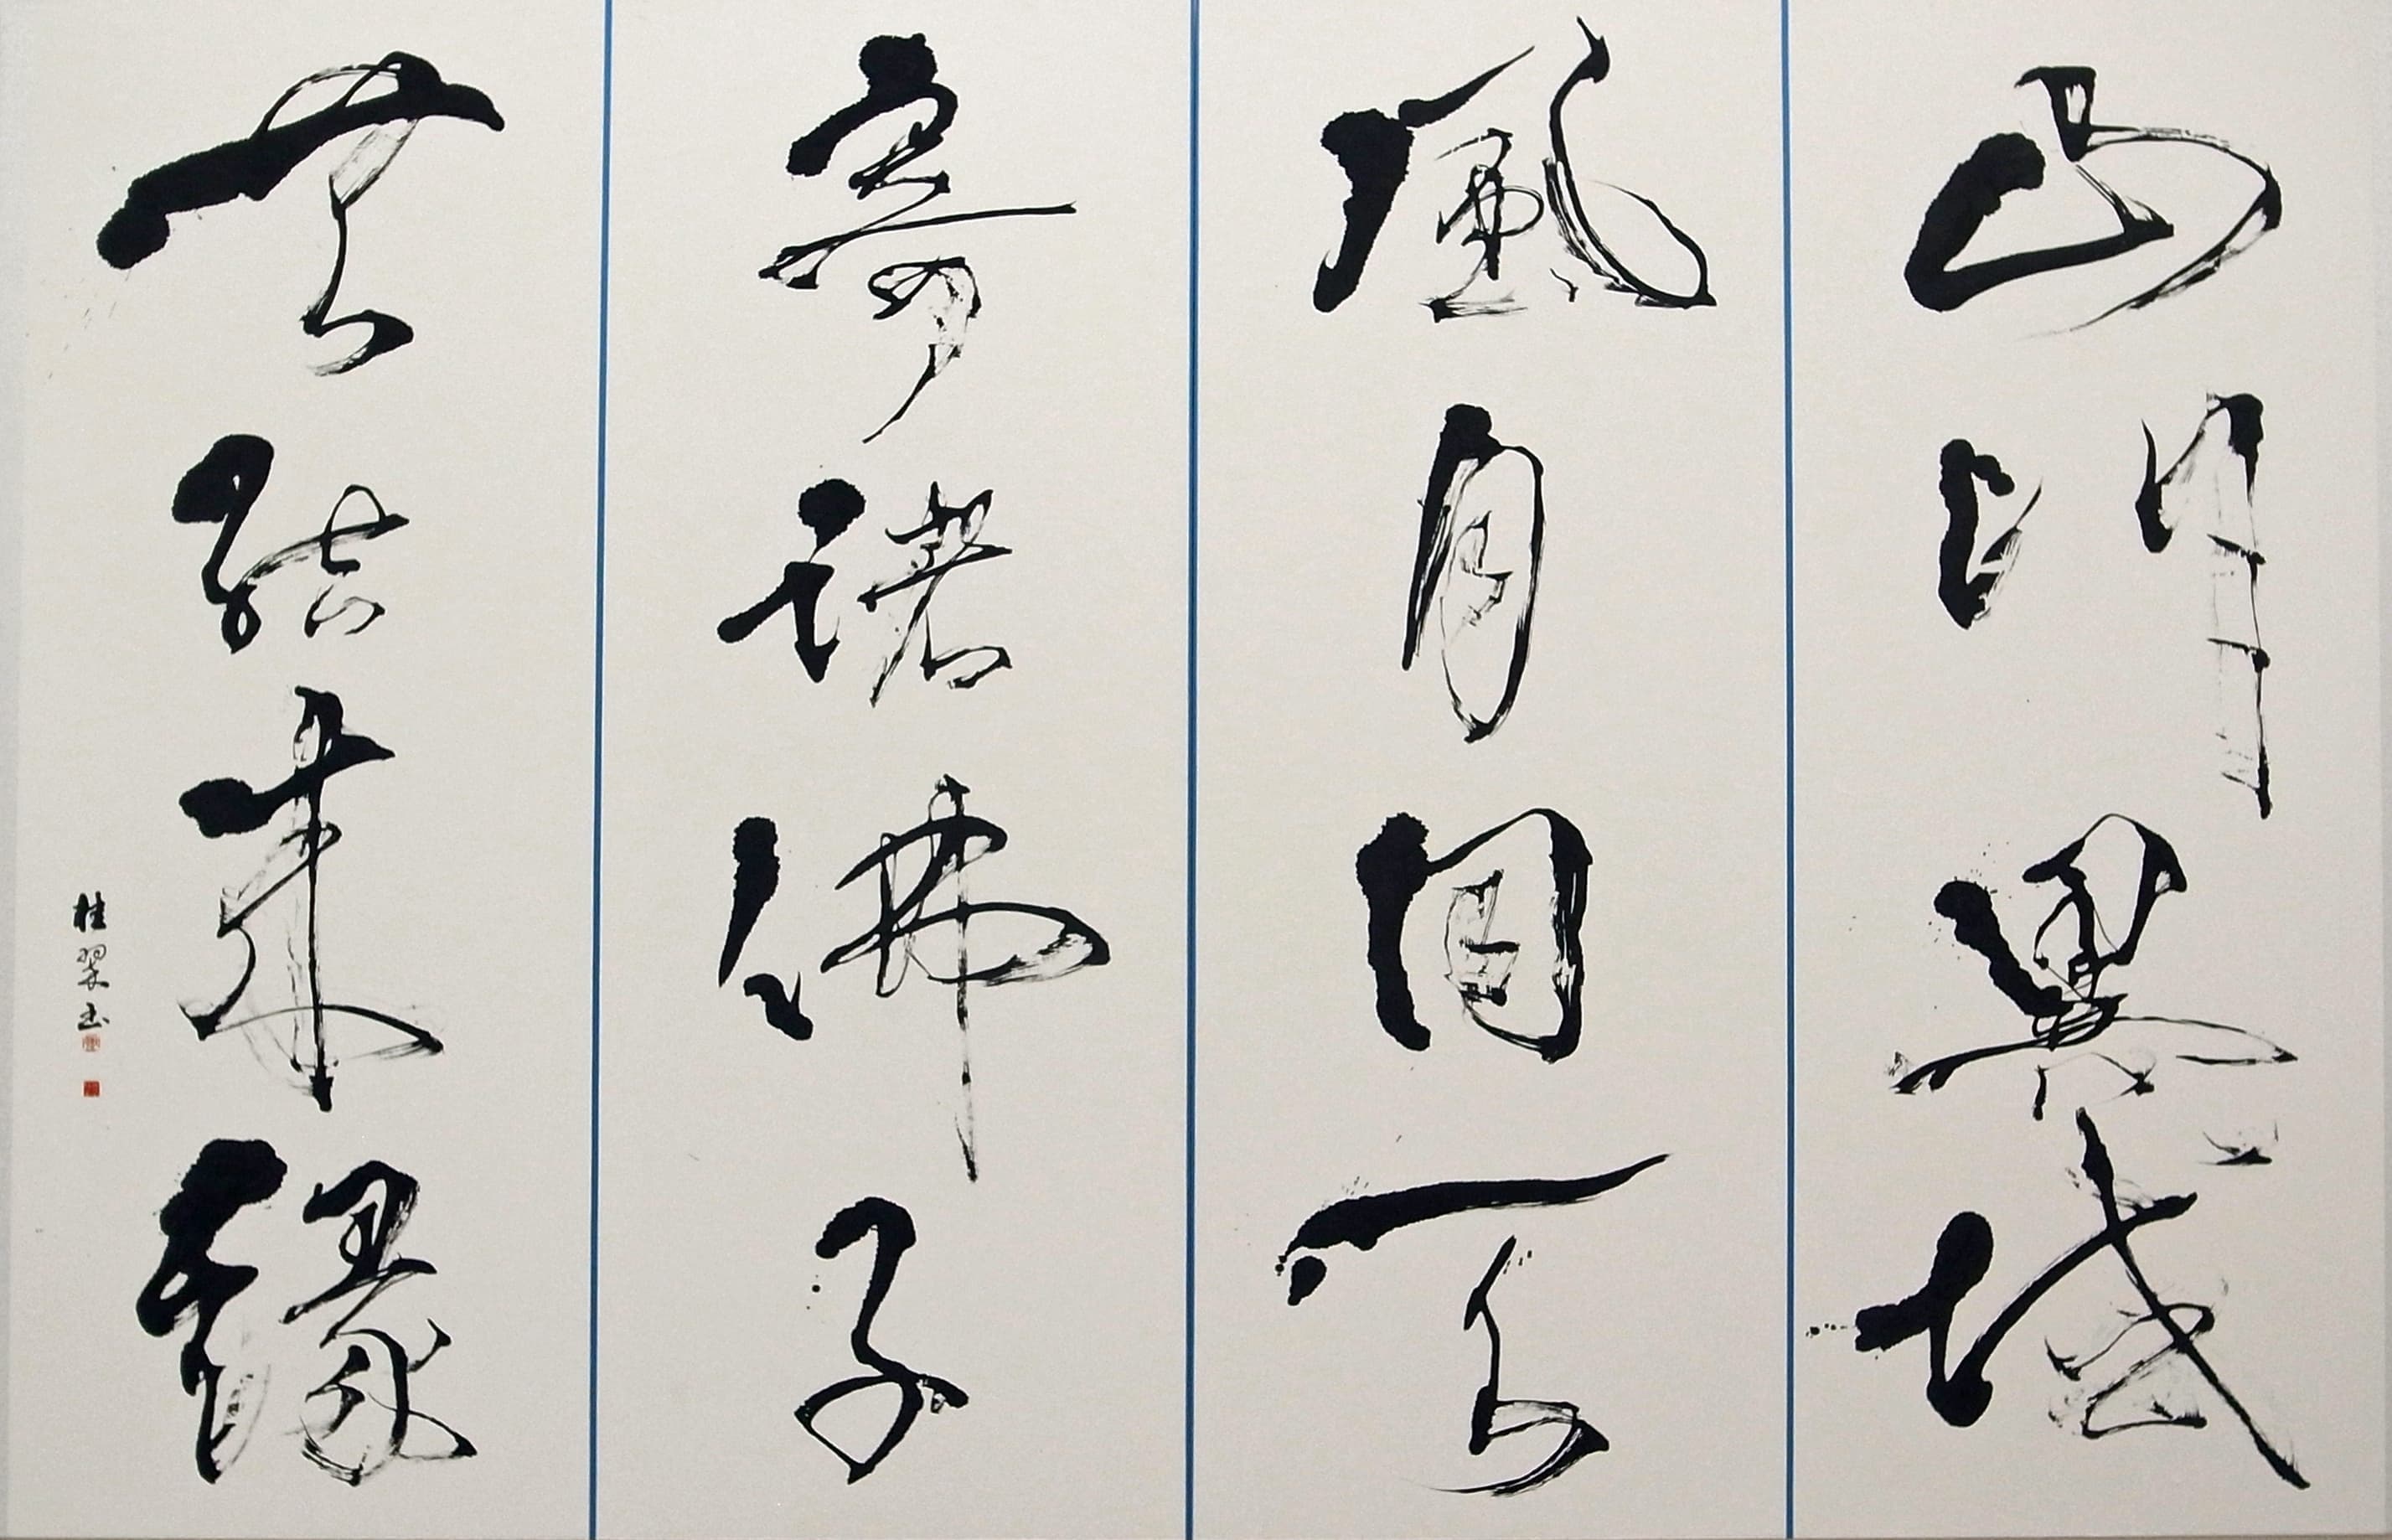 山川異域
風月同天
寄諸佛子
共結来縁
桂翠書